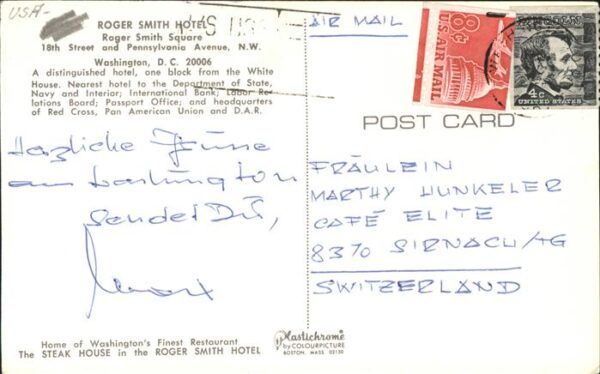 USA-
ROGER SMITH HOTEL
Roger Smith Square
18th Street and Pennsylvania Avenue, N.W.
Washington, D. C. 20006
A distinguished hotel, one block from the White
House. Nearest hotel to the Department of State,
Navy and Interior; International Bank; Labor Re-
lations Board; Passport Office; and headquarters
of Red Cross, Pan American Union and D.A.R.
AIR MAIL
8c
U.S. AIR MAIL
4c
UNITED STATES
POST CARD
Herzliche Grüsse
aus Washington
sendet Dir,
FRÄULEIN
MARTHY HUNKELER
CAFÉ ELITE
8370 SIRNACH/TG
SWITZERLAND
Home of Washington's Finest Restaurant
The STEAK HOUSE in the ROGER SMITH HOTEL
Plastichrome
by COLOURPICTURE
BOSTON, MASS 02130